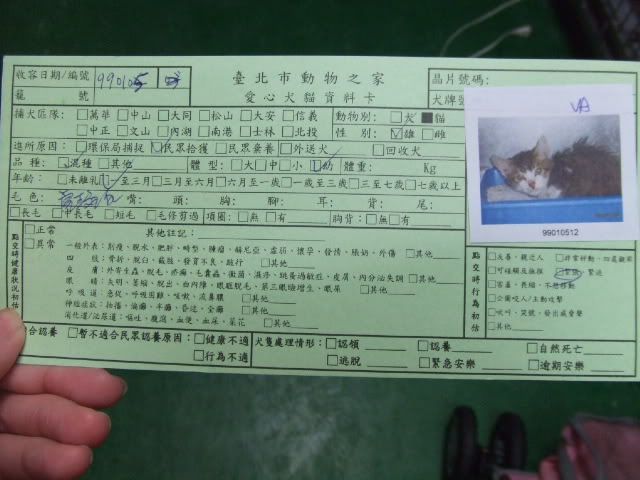 收容日期/編號 990105 臺北市動物之家 晶片號碼:
籠 號 愛心犬貓資料卡 犬牌號
捕犬區隊: □萬華 □中山 □大同 □松山 □大安 □信義 動物別: □犬 ■貓
□中正 □文山 □內湖 □南港 □士林 □北投 性 別: □雄 □雌
進所原因: □環保局捕捉 □民眾拾獲 □民眾棄養 □外送犬 □回收犬
品 種: □混種 □其他 體 型: □大 □中 □小 □幼 體重: Kg
年齡: □未離乳 □至三月 □三月至六月 □六月至一歲 □一歲至三歲 □三至七歲 □七歲以上
毛 色: 嘴: 頭: 胸: 腳: 耳: 背: 尾:
□長毛 □中長毛 □短毛 □毛修剪過 項圈: □無 □有 胸背: □無 □有
點交時健康狀況初估 □正常 其他註記:
□異常 一般外表: 削瘦、脫水、肥胖、畸型、腫瘤、赫尼亞、虛弱、懷孕、發情、脹奶、外傷 □其他
四 肢: 骨折、脫臼、截肢、發育不良、跛行 □其他
皮 膚: 外寄生蟲、脫毛、疥癬、毛囊蟲、黴菌、濕疹、跳蚤過敏症、皮屑、內分泌失調 □其他
眼 睛: 失明、萎縮、脫出、白內障、眼瞼脫毛、第三眼瞼增生、眼屎 □其他
呼 吸 道: 急促、呼吸困難、咳嗽、流鼻膿 □其他
神經症狀: 抽搐、癲癇、半癱、昏迷、全癱 □其他
消化道/泌尿道: 嘔吐、腹瀉、血便、血尿、菜花 □其他
點交時行為初估 □友善、親近人 □非常好動、四處亂竄
□可碰觸及撫摸 □緊張、緊迫
□害羞、畏縮、不想移動
□企圖咬人/主動攻擊
□吠叫、哭號、發出威脅聲
□其他
合認養 □暫不適合民眾認養原因: □健康不適 犬隻處理情形: □認領 □認養 □自然死亡
□行為不適 □逃脫 □緊急安樂 □逾期安樂
VA
99010512